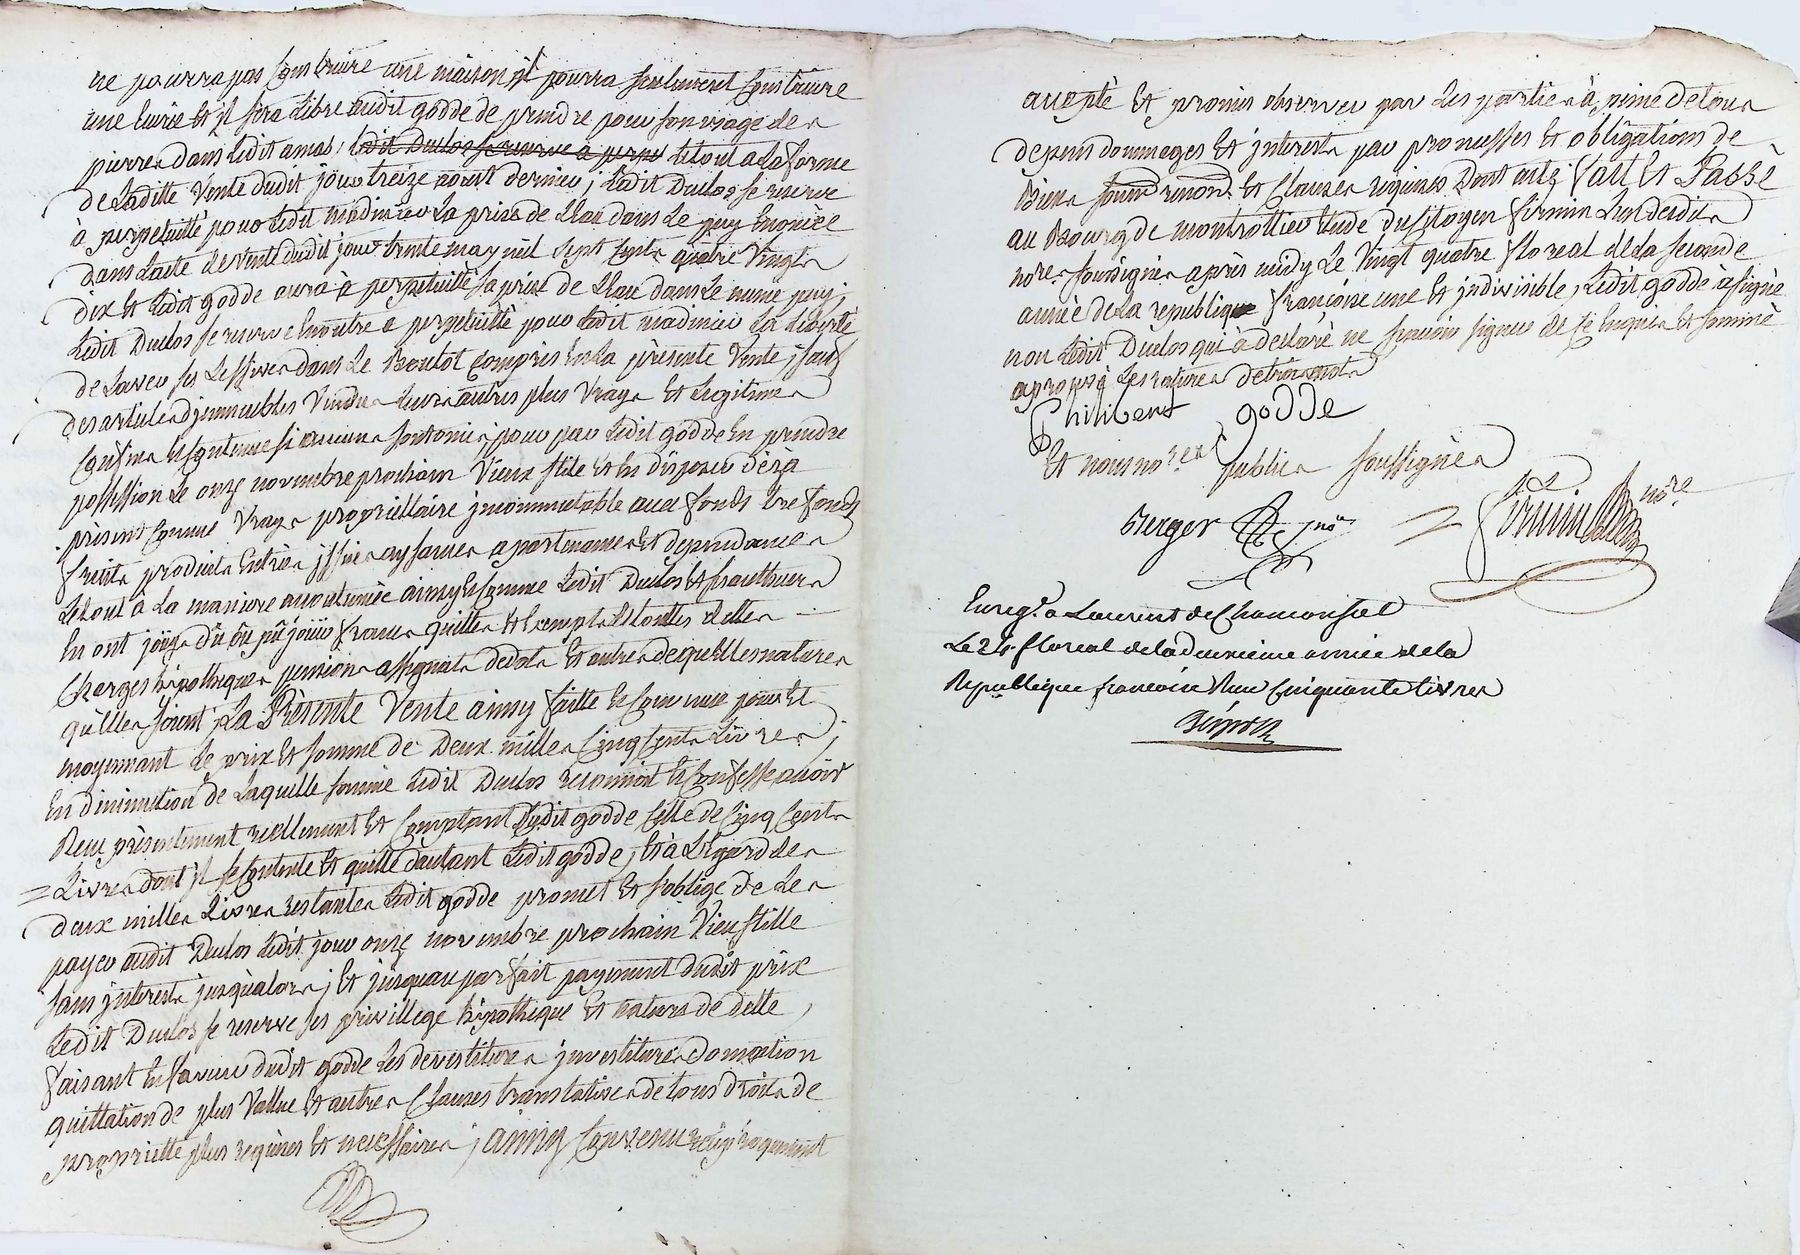 ne pourra pas Construire une maison jl pourra seulement Construire
une Curée et jl sera Libre audit godde de prendre pour son usage des
pierres dans Ledit amas, ledit Duclos se reserve à perpe le tout a La forme
de Laditte Vente dudit jour treize aoust dernier; Ledit Duclos se reserve
à perpetuitté pour Ledit madinier La prise de Leau dans Le puy Enoncée
dans Lacte de vente dudit jour trente may mil sept Cents quatre Vingts
dix et Ledit godde aura à perpetuitté sa prise de Leau dans Le même puy;
Ledit Duclos se reserve Enoutre a perpetuitté pour Ledit madinier La Liberté
de Laver ses Lessives dans Le Boutot Compris En La presente Vente, sauf
des articles djmmeubles Vendus Leurs autres plus Vrays et Legitimes
Confins et Contenue si aucuns sont omis, pour par Ledit godde En prendre
possession Le onze novembre prochain Vieux stile et En disposer dèsà
présent Comme Vrays propriettaire jncommutable aux fonds tresfonds
fruits produits Entrées jssues aysances apartenances et dependances
Letout à La maniere accoutumée ainsy et Comme Ledit Duclos et ses autheurs
En ont jöüys dû ôu pû jöüir francs quittes et Exempts de toutes dettes
Charges hipotheques pensions assignats de dots et autres de quelles natures
qu'Elles soient; La Présente Vente ainsy faitte et Convenue pour et
moyennant Le prix et somme de Deux milles Cinq Cents Livres;
En diminution de Laquelle somme Ledit Duclos reconnoit et Confesse avoir
Reçu présentement reellement et Comptant dudit godde Celle de Cinq Cents
Livres dont jl se Contente et quitte dautant Ledit godde; et à Légard des
deux milles Livres restantes Ledit godde promet et soblige de Les
payer audit Duclos Ledit jour onze novembre prochain Vieu stille
sans jnterests jusqualors; et jusquau parfait payement dudit prix
Ledit Duclos se reserve ses privillege hipotheque et nature de dette,
faisant En faveur dudit godde Les devestitures jnvestitures donnation
quittation de plus Vallue et autres Clauses translatives de tous droits de
proprietté plus requises et necessaires; ainsy Convenu reciproquement
accepté et promis observer par Les parties à peine de tous
depens dommages et jnterests par promesses et obligations de
Biens soum renons et Clauses requises Dont acte; fait et Passé
au Bourg de montrottier Etude du Citoyen firmin Lun desdits
nores soussignés après midy Le Vingt quatre floreal de La seconde
année de La republique françoise une et jndivisible, Ledit godde à signé
non Ledit Duclos qui à declaré ne sçavoir signer de Ce Enquis et sommé
aprouvé Les ratures de trois mots
Philibert godde
Et nous nores publics soussignés
Berger nore
firmin nore
Enregt. a Laurent de Chamousset
Le 24 floreal de la deuxieme année de la
Republique francoise Reçu Cinquante livres